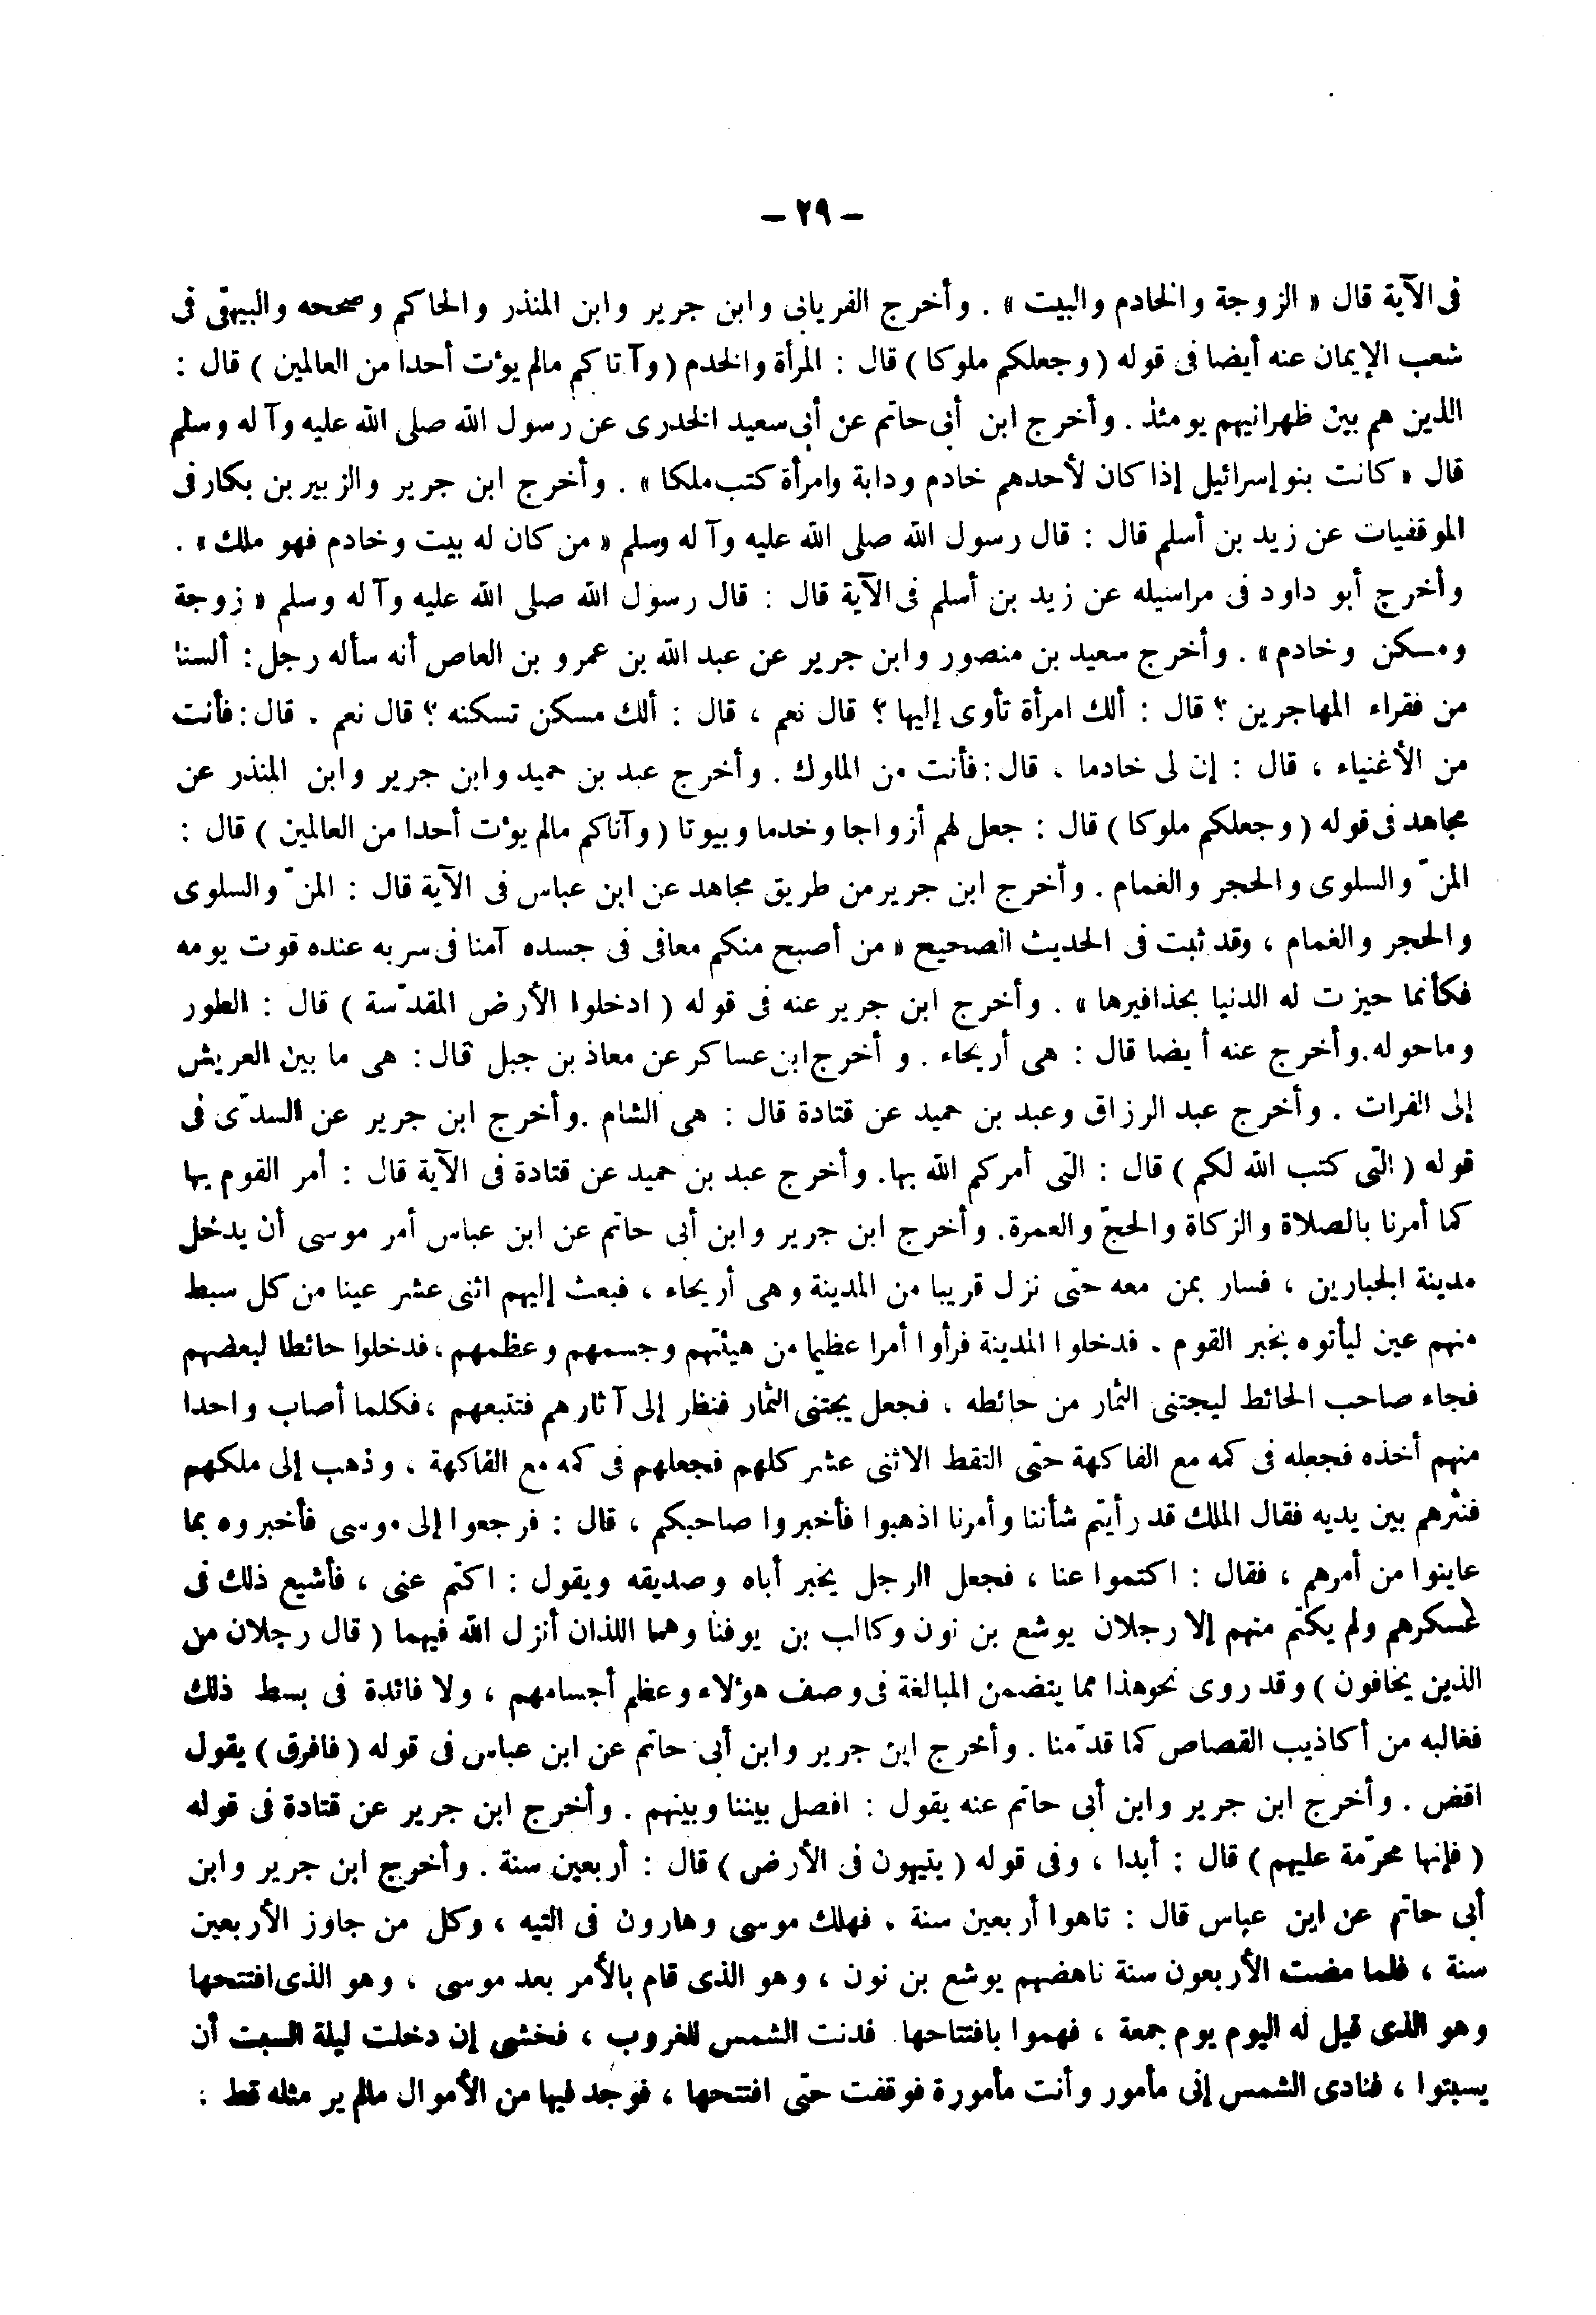 – ٢٩ –
فى الآية قال « الزوجة والخادم والبيت » . وأخرج الفريابى وابن جرير وابن المنذر والحاكم وصححه والبيهقى فى
شعب الإيمان عنه أيضا فى قوله ( وجعلكم ملوكا ) قال : المرأة والخدم ( وآتاكم مالم يؤت أحدا من العالمين ) قال :
الذين هم بين ظهرانيهم يومئذ . وأخرج ابن أبى حاتم عن أبى سعيد الخدرى عن رسول الله صلى الله عليه وآله وسلم
قال « كانت بنو إسرائيل إذا كان لأحدهم خادم ودابة وامرأة كتب ملكا » . وأخرج ابن جرير والزبير بن بكار فى
الموقفيات عن زيد بن أسلم قال : قال رسول الله صلى الله عليه وآله وسلم « من كان له بيت وخادم فهو ملك » .
وأخرج أبو داود فى مراسيله عن زيد بن أسلم فى الآية قال : قال رسول الله صلى الله عليه وآله وسلم « زوجة
ومسكن وخادم » . وأخرج سعيد بن منصور وابن جرير عن عبد الله بن عمرو بن العاص أنه سأله رجل : ألسنا
من فقراء المهاجرين ؟ قال : ألك امرأة تأوى إليها ؟ قال نعم ، قال : ألك مسكن تسكنه ؟ قال نعم . قال : فأنت
من الأغنياء ، قال : إن لى خادما ، قال : فأنت من الملوك . وأخرج عبد بن حميد وابن جرير وابن المنذر عن
مجاهد فى قوله ( وجعلكم ملوكا ) قال : جعل لهم أزواجا وخدما وبيوتا ( وآتاكم مالم يؤت أحدا من العالمين ) قال :
المنّ والسلوى والحجر والغمام . وأخرج ابن جرير من طريق مجاهد عن ابن عباس فى الآية قال : المنّ والسلوى
والحجر والغمام ، وقد ثبت فى الحديث الصحيح « من أصبح منكم معافى فى جسده آمنا فى سربه عنده قوت يومه
فكأنما حيزت له الدنيا بحذافيرها » . وأخرج ابن جرير عنه فى قوله ( ادخلوا الأرض المقدّسة ) قال : الطور
وماحوله.وأخرج عنه أيضا قال : هى أريحاء . وأخرج ابن عساكر عن معاذ بن جبل قال : هى ما بين العريش
إلى الفرات . وأخرج عبد الرزاق وعبد بن حميد عن قتادة قال : هى الشام .وأخرج ابن جرير عن السدّى فى
قوله ( التى كتب الله لكم ) قال : التى أمركم الله بها. وأخرج عبد بن حميد عن قتادة فى الآية قال : أمر القوم بها
كما أمرنا بالصلاة والزكاة والحجّ والعمرة. وأخرج ابن جرير وابن أبى حاتم عن ابن عباس أمر موسى أن يدخل
مدينة الجبارين ، فسار بمن معه حتى نزل قريبا من المدينة وهى أريحاء ، فبعث إليهم اثنى عشر عينا من كل سبط
منهم عين ليأتوه بخبر القوم . فدخلوا المدينة فرأوا أمرا عظيما من هيئتهم وجسمهم وعظمهم ، فدخلوا حائطا لبعضهم
فجاء صاحب الحائط ليجتنى الثمار من حائطه ، فجعل يجتنى الثمار فنظر إلى آثارهم فتتبعهم ، فكلما أصاب واحدا
منهم أخذه فجعله فى كمه مع الفاكهة حتى التقط الاثنى عشر كلهم فجعلهم فى كمه مع الفاكهة ، وذهب إلى ملكهم
فنثرهم بين يديه فقال الملك قد رأيتم شأننا وأمرنا اذهبوا فأخبروا صاحبكم ، قال : فرجعوا إلى موسى فأخبروه بما
عاينوا من أمرهم ، فقال : اكتموا عنا ، فجعل الرجل يخبر أباه وصديقه ويقول : اكتم عنى ، فأشيع ذلك فى
عسكرهم ولم يكتم منهم إلا رجلان يوشع بن نون وكالب بن يوفنا وهما اللذان أنزل الله فيهما ( قال رجلان من
الذين يخافون ) وقد روى نحوهذا مما يتضمن المبالغة فى وصف هؤلاء وعظم أجسامهم ، ولا فائدة فى بسط ذلك
فغالبه من أكاذيب القصاص كما قدّمنا . وأخرج ابن جرير وابن أبى حاتم عن ابن عباس فى قوله ( فافرق ) يقول
اقض . وأخرج ابن جرير وابن أبى حاتم عنه يقول : افصل بيننا وبينهم . وأخرج ابن جرير عن قتادة فى قوله
( فإنها محرّمة عليهم ) قال : أبدا ، وفى قوله ( يتيهون فى الأرض ) قال : أربعين سنة . وأخرج ابن جرير وابن
أبى حاتم عن ابن عباس قال : تاهوا أربعين سنة ، فهلك موسى وهارون فى التيه ، وكل من جاوز الأربعين
سنة ، فلما مضت الأربعون سنة ناهضهم يوشع بن نون ، وهو الذى قام بالأمر بعد موسى ، وهو الذى افتتحها
وهو الذى قيل له اليوم يوم جمعة ، فهموا بافتتاحها فدنت الشمس للغروب ، فخشى إن دخلت ليلة السبت أن
يسبتوا ، فنادى الشمس إنى مأمور وأنت مأمورة فوقفت حتى افتتحها ، فوجد فيها من الأموال مالم ير مثله قط :